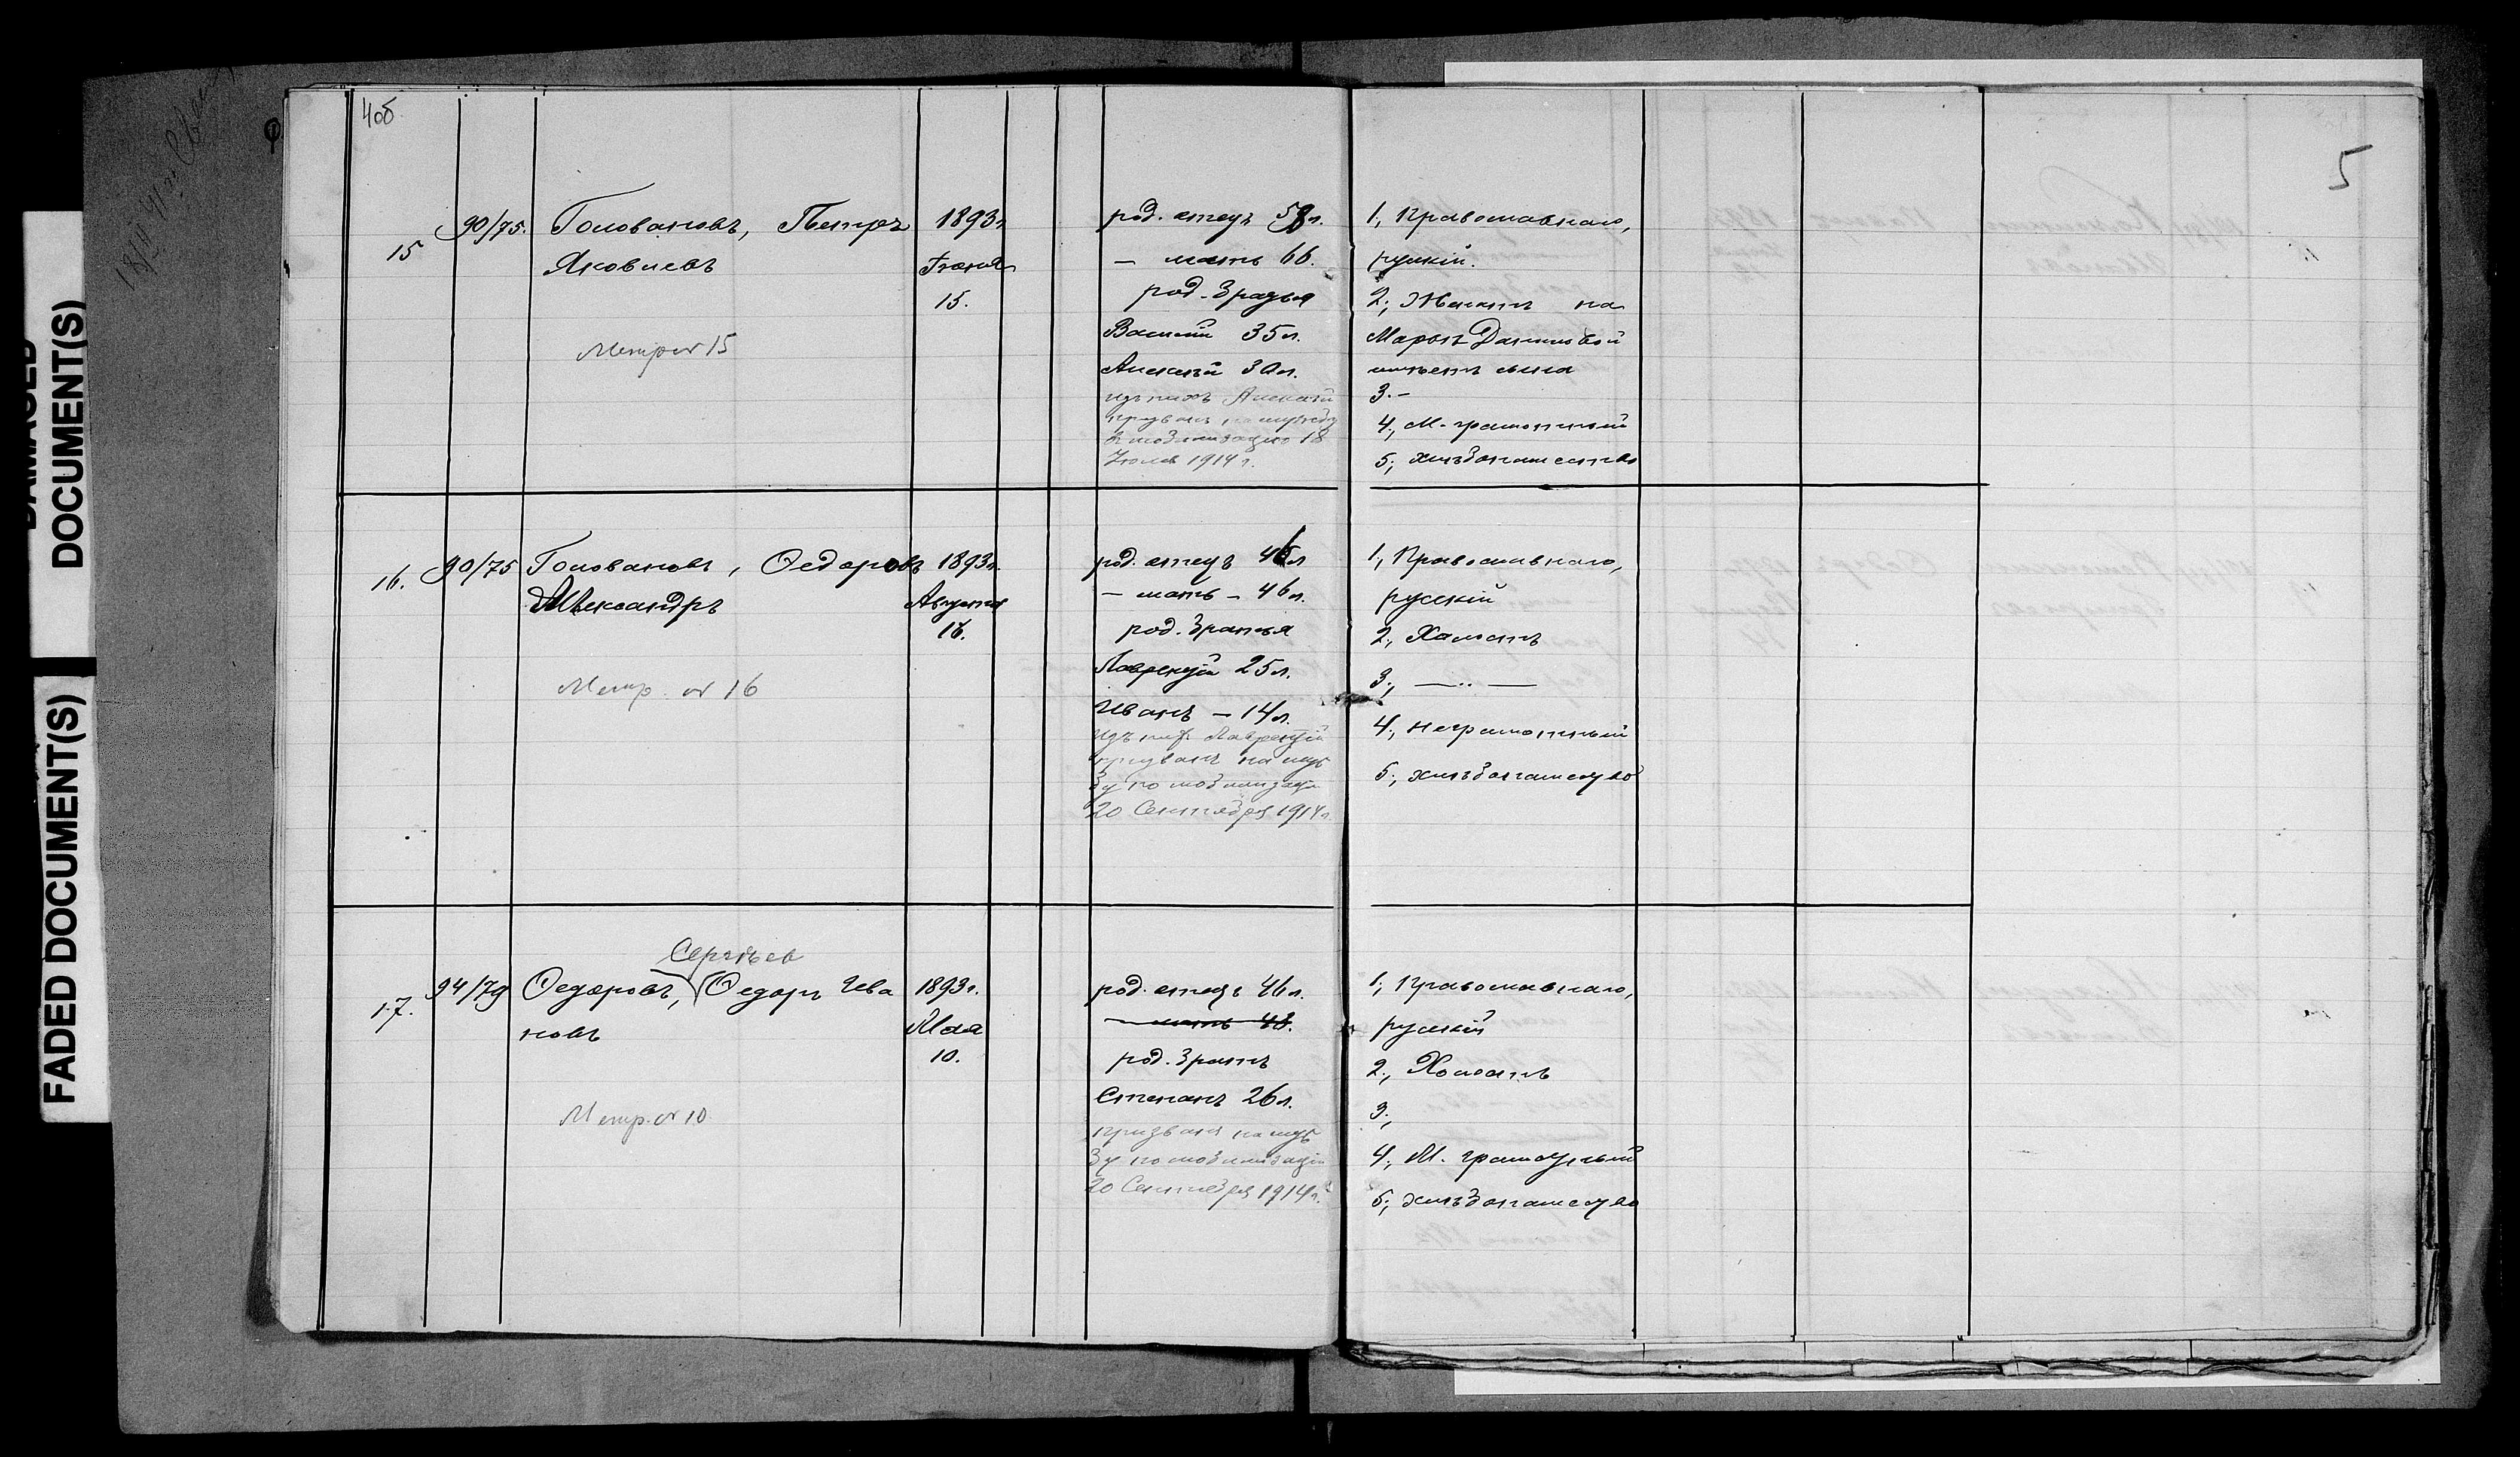 DAMAGED
DOCUMENT(S)
FADED DOCUMENT(S)
4об
5
15 90/75. Головановъ, Петръ 1893г.
Яковлевъ Іюня
15.
Метр № 15
род. отецъ 58л.
— мать 66.
род. братья
Василій 35л.
Алексѣй 30л.
изъ нихъ Алексѣй
призванъ на службу
мобилизацію 18
Іюля 1914г.
1, Православнаго,
русскій.
2, Женатъ на
Марьѣ Даниловой
имѣетъ сына
3. —
4, М. грамотный
5, хлѣбопашество
16. 90/75 Головановъ, Ѳедоровъ 1893г.
Александръ Августа
16.
Метр. № 16
род. отецъ 46л
— мать — 46л.
род. братья
Лаврентій 25л.
Иванъ — 14л.
изъ них Лаврентій
призванъ на служ
бу по мобилизаціи
20 Сентября 1914г.
1, Православнаго,
русскій
2, Холостъ
3, — .. —
4, неграмотный
5, хлѣбопашество
Сергѣев
17. 94/79 Ѳедоровъ, Ѳедоръ Ива 1893г.
новъ Мая
10.
Метр. № 10
род. отецъ 46л.
— мать 43.
род. братъ
Степанъ 26л.
призванъ на служ
бу по мобилизаціи
20 Сентября 1914г.
1, Православнаго,
русскій
2, Холостъ
3,
4, М. грамотный
5, хлѣбопашество